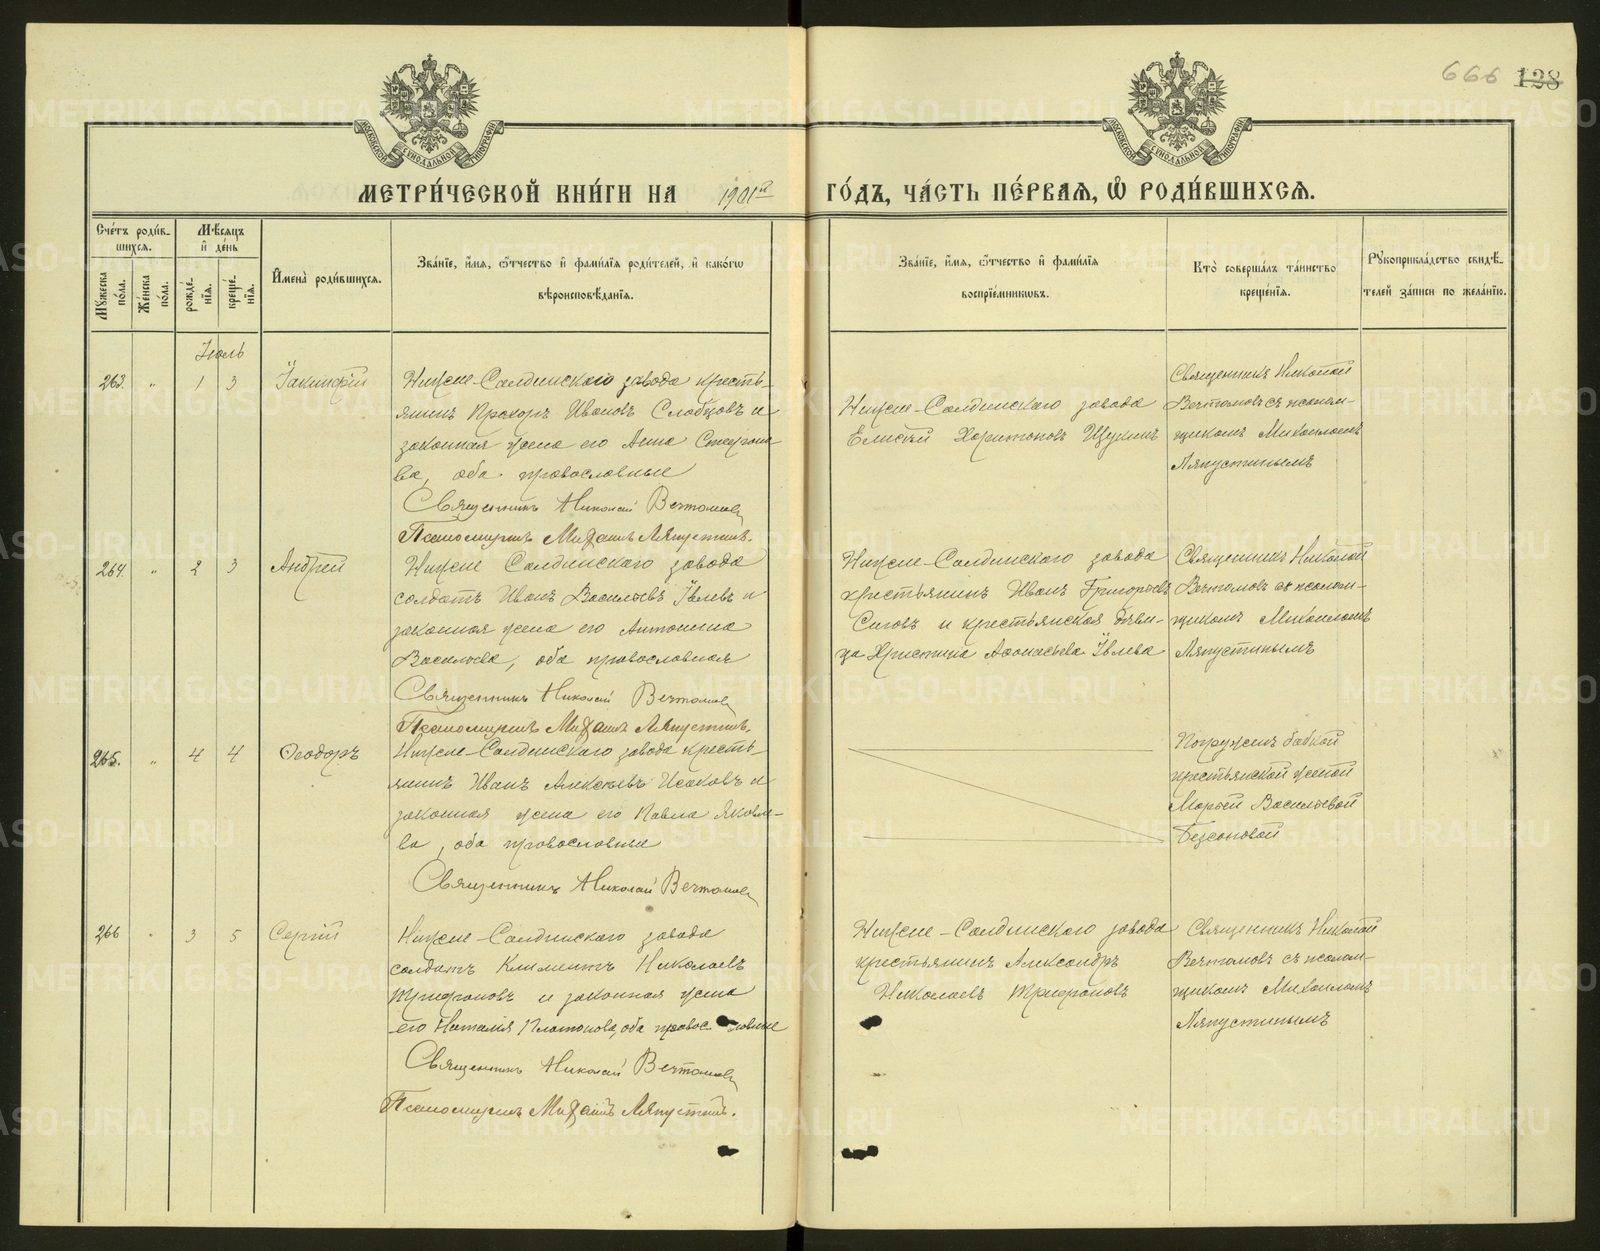 666 128
МОСКОВСКОЙ СѴНОДАЛЬНОЙ ТИПОГРАФІИ
МОСКОВСКОЙ СѴНОДАЛЬНОЙ ТИПОГРАФІИ
МЕТРИ́ЧЕСКОЙ КНИ́ГИ НА 1901й ГО́ДЪ, ЧА́СТЬ ПЕ́РВАѦ, Ѽ РОДИ́ВШИХСѦ.
Сче́тъ роди́в-
шихсѧ.
Мꙋжеска по́ла.
Же́нска по́ла.
Мѣ́сѧцъ
и҆ де́нь
рожде́-
нїѧ.
креще́-
нїѧ.
И҆мена̀ роди́вшихсѧ.
Зва́нїе, и҆́мѧ, ѻ҆́тчество и҆ фами́лїѧ роди́телей, и҆ како́гѡ
вѣроисповѣ́данїѧ.
Зва́нїе, и҆́мѧ, ѻ҆́тчество и҆ фами́лїѧ
воспрїе́мникѡвъ.
Кто̀ соверша́лъ та́инство
креще́нїѧ.
Рꙋкоприкла́дство свидѣ́-
телей за́писи по жела́нїю.
Іюль
263. " 1 3 Іакинфій
Нижне-Салдинскаго завода кресть-
янинъ Прохоръ Ивановъ Слобцовъ и
законная жена его Анна Стефано-
ва, оба православные
Священникъ Николай Вечтомовъ
Псаломщикъ Михаилъ Ляпустинъ.
Нижне-Салдинскаго завода
Елисей Харитоновъ Щукинъ
Священникъ Николай
Вечтомовъ съ псалом-
щикомъ Михаиломъ
Ляпустинымъ
264. " 2 3 Андрей
Нижне Салдинскаго завода
солдатъ Иванъ Васильевъ Івлевъ и
законная жена его Антонина
Васильева, оба православная
Священникъ Николай Вечтомовъ
Псаломщикъ Михаилъ Ляпустинъ.
Нижне-Салдинскаго завода
крестьянинъ Иванъ Григорьевъ
Сиговъ и крестьянская дѣви-
ца Христина Аѳонасьева Івлева
Священникъ Николай
Вечтомовъ съ псалом-
щикомъ Михаиломъ
Ляпустинымъ
265. " 4 4 Ѳеодоръ
Нижне-Салдинскаго завода кресть-
янинъ Иванъ Алексѣевъ Исаковъ и
законная жена его Павла Яковле-
ва, оба православные
Священникъ Николай Вечтомовъ
Погруженъ бабкой
крестьянской женой
Марѳей Васильевой
Безсоновой
266 " 3 5 Сергій
Нижне-Салдинскаго завода
солдатъ Климентъ Николаевъ
Трифоновъ и законная жена
его Наталія Платонова, оба православные
Священникъ Николай Вечтомовъ
Псаломщикъ Михаилъ Ляпустинъ.
Нижне-Салдинскаго завода
крестьянинъ Александръ
Николаевъ Трифоновъ
Священникъ Николай
Вечтомовъ съ псалом-
щикомъ Михаиломъ
Ляпустинымъ
METRIKI.GASO-URAL.RU